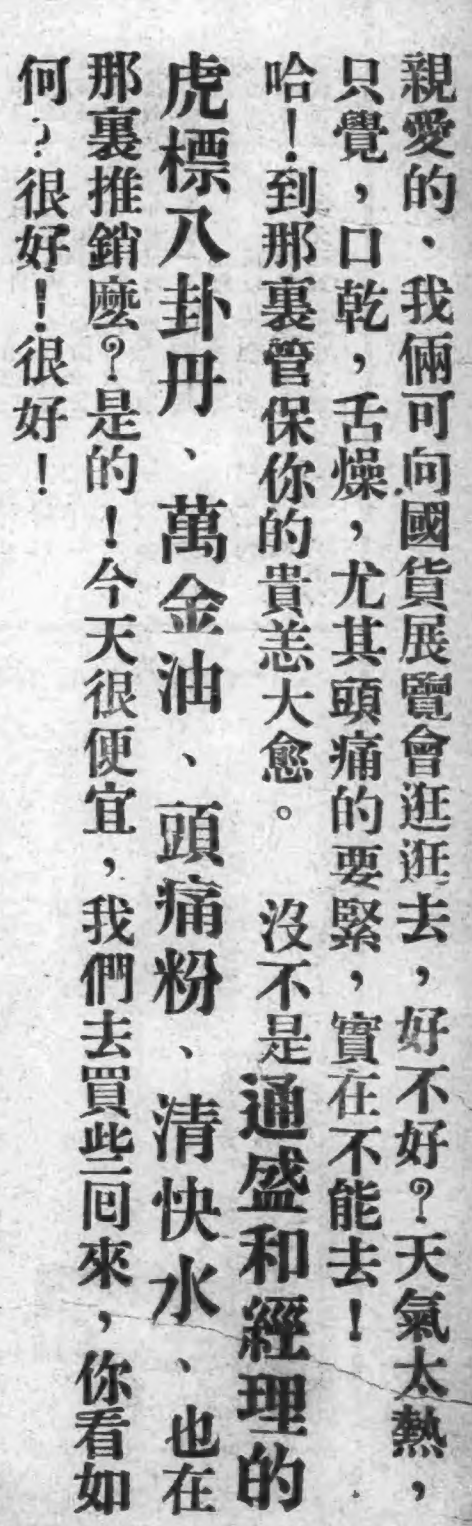 親愛的、我倆可向國貨展覽會逛逛去，好不好？天氣太熱，
只覺，口乾，舌燥，尤其頭痛的要緊，實在不能去！
哈！到那裏管保你的貴恙大愈。 沒不是通盛和經理的
虎標八卦丹、萬金油、頭痛粉、清快水、也在
那裏推銷麽？是的！今天很便宜，我們去買些囘來，你看如
何？很好！很好！